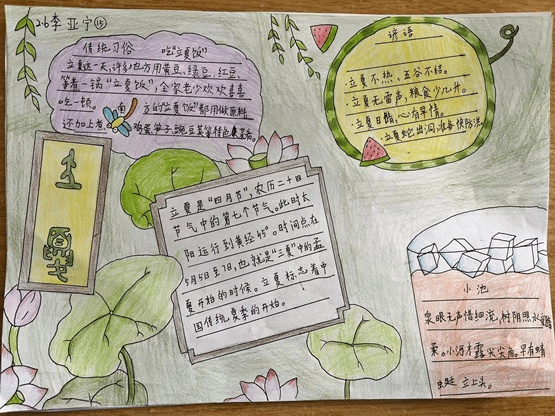 2.6李亚宁⑮
传统习俗 吃"立夏饭"
立夏这一天,许多地方用黄豆、绿豆、红豆、
等煮一锅"立夏饭",全家老少欢欢喜喜
吃一顿。 方的"立夏饭"都用做原料
还加上煮 鸡蛋笋子豌豆菜等特色
谚语
·立夏不热,五谷不结。
·立夏无雷声,粮食少几升。
·立夏日晴,必有旱情。
·立夏蛇出洞,准备快防洪。
立夏
立夏是"四月节",农历二十四
节气中的第七个节气。此时太
阳运行到黄经45°。时间点在
5月5日至7日,也就是"三夏"中的孟
夏开始的时候。立夏标志着中
国传统夏季的开始。
小池
泉眼无声惜细流,树阴照水
柔。小河才露尖尖角。早有蜻
蜓立上头。